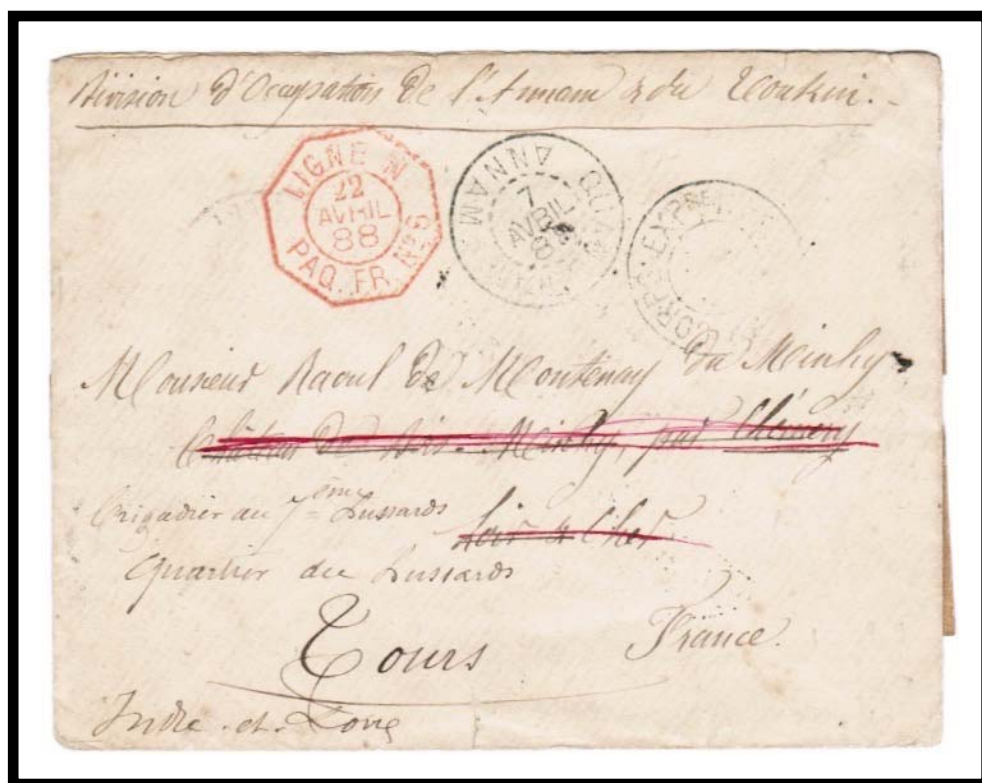 Division d'Occupation de l'Annam & du Tonkin.
LIGNE N
22
AVRIL
88
PAQ. FR. Nº 5
QUAN
ANNAM
7
AVRIL
88
CORPS EXPRE
Monsieur Raoul de Montenay du Minhy
Château de Minhy, par Chémery
Brigadier au 7ème Hussards
Loir & Cher
Quartier du Hussards
Tours
France.
Indre-et-Loire